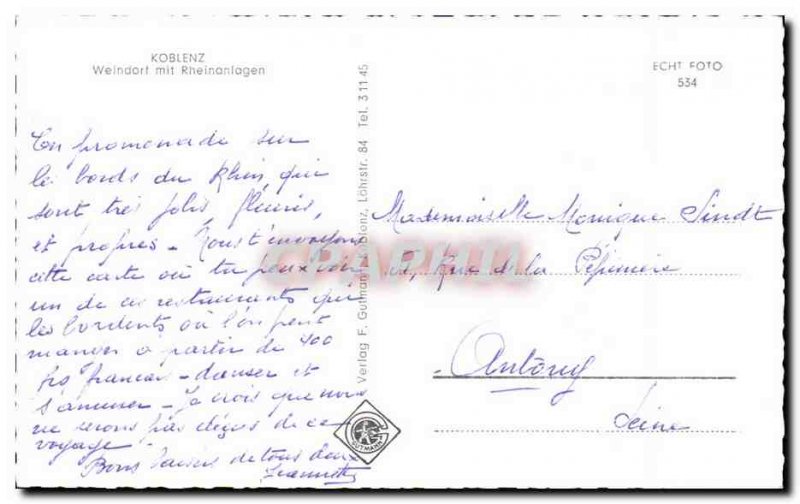 KOBLENZ
Weindorf mit Rheinanlagen
En promenade sur
les bords du Rhin qui
sont très jolis, fleuris,
et propres - Nous t'envoyons
cette carte où tu peux voir
un de ces restaurants qui
les bordent où l'on peut
manger à partir de 400
frs français - danser et
s'amuser - Je crois que nous
ne serons pas déçus de ce
voyage
Bons baisers de tous deux
Jeannette
Verlag F. Gutmann Koblenz, Löhrstr. 84 Tel. 31145
GUTMANN
ECHT FOTO
534
Mademoiselle Monique Sindt
Rue de la Pépinière
Antony
Seine
CPAPHIL